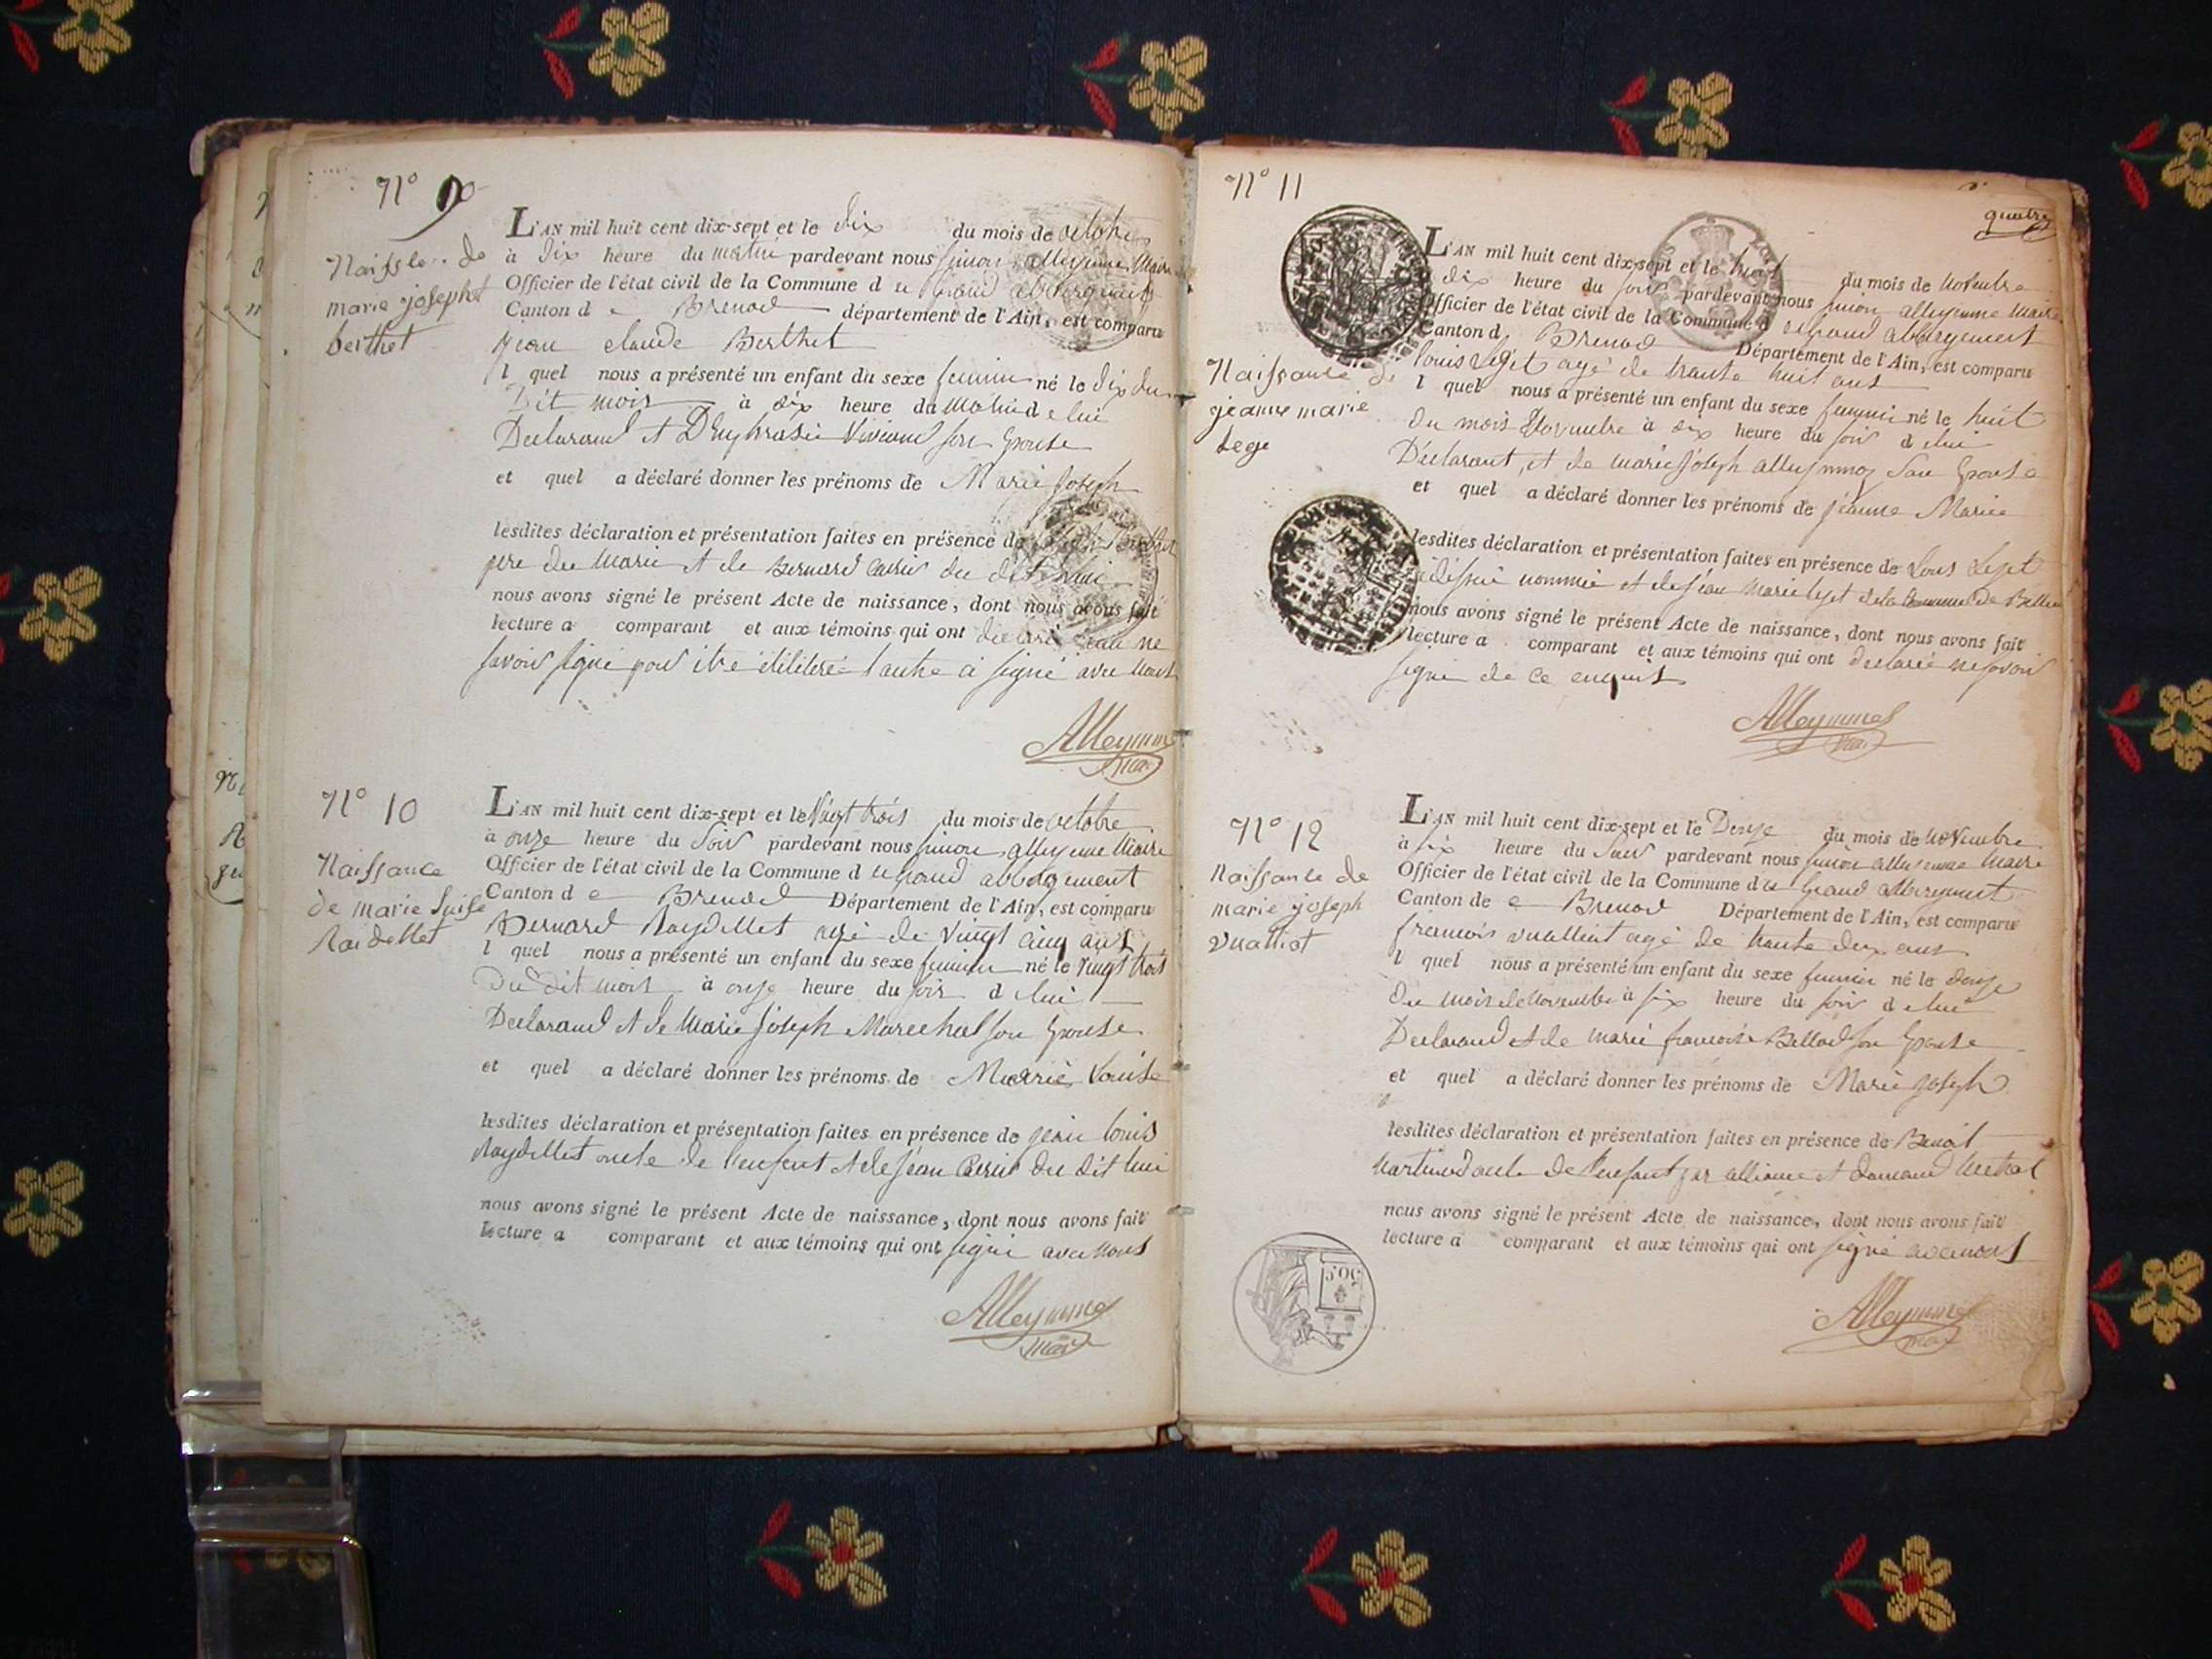 N° 9
Naiss de
marie josephet
berthet
L'AN mil huit cent dix-sept et le dix du mois de octobre
à dix heure du matin pardevant nous simon alleymme Maire
Officier de l'état civil de la Commune d u grand abbergment
Canton d e Brenod département de l'Ain, est comparu
jean claude Berthet
l quel nous a présenté un enfant du sexe feminin né le dix du
Dit mois à six heure du matin d e lui
Declarand et D'Euphrasie Viviand son Epouse
et quel a déclaré donner les prénoms de Marie Joseph
lesdites déclaration et présentation faites en présence de
pere du Marie et de Bernard du dit
nous avons signé le présent Acte de naissance, dont nous avons fait
lecture a comparant et aux témoins qui ont declaré ne
savoir signé pour itre illiteré l'autre a signé avec nous
Alleymme
Maire
N° 10
Naissance
de marie Luise
Raidellet
L'AN mil huit cent dix-sept et le Vingt trois du mois de octobre
à onze heure du Soir pardevant nous simon alleymme Maire
Officier de l'état civil de la Commune d u grand abbergement
Canton d e Brenod Département de l'Ain, est comparu
Bernard Raydellet agé de vingt cinq ans
l quel nous a présenté un enfant du sexe feminin né le vingt trois
Du dit mois à onze heure du soir d e lui
Declarand et de Marie Joseph Marechal son Epouse
et quel a déclaré donner les prénoms de Marie Louise
lesdites déclaration et présentation faites en présence de jean louis
Raydellet oncle de l'enfant et de jean du dit lui
nous avons signé le présent Acte de naissance, dont nous avons fait
lecture a comparant et aux témoins qui ont signé avec nous
Alleymme
Maire
N° 11
quatre
Naissance de
jeanne marie
Lege
L'AN mil huit cent dix-sept et le huit du mois de Novembre
dix heure du soir pardevant nous simon alleymme Maire
Officier de l'état civil de la Commune d u grand abbergement
Canton d, Brenod Département de l'Ain, est comparu
louis Leget agé de trante huit ans
l quel nous a présenté un enfant du sexe feminin né le huit
Du mois Novembre à six heure du soir d e lui
Déclarant, et de marie Joseph alleymmoz Son Epouse
et quel a déclaré donner les prénoms de jeanne Marie
lesdites déclaration et présentation faites en présence de Louis Leget
nommé et de jean marie leget de la de
nous avons signé le présent Acte de naissance, dont nous avons fait
lecture a comparant et aux témoins qui ont declaré ne savoir
signer de ce enquis
Alleymme
Maire
N° 12
Naissance de
marie joseph
vualliot
L'AN mil huit cent dix-sept et le Douze du mois de Novembre
à six heure du Soir pardevant nous simon alleymme Maire
Officier de l'état civil de la Commune d u Grand abbergement
Canton de e Brenod Département de l'Ain, est comparu
francois vuallent agé de trante deux ans
l quel nous a présenté un enfant du sexe feminin né le douze
Du mois de Novembre à six heure du soir d e lui
Declarand et de marie francoise Ballad son Epouse
et quel a déclaré donner les prénoms de Marie joseph
lesdites déclaration et présentation faites en présence de Benoit
Martinod oncle de l'enfant par alliance et
nous avons signé le présent Acte de naissance, dont nous avons fait
lecture a comparant et aux témoins qui ont signé avec nous
50.C
Alleymme
Maire